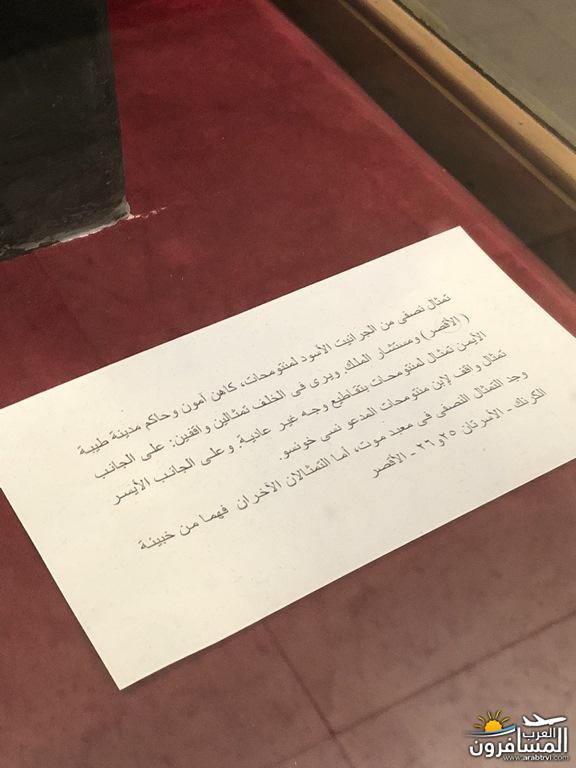 تمثال نصفى من الجرانيت الأسود لمنتومحات، كاهن آمون وحاكم مدينة طيبة
( الأقصر) ومستشار الملك. ويرى فى الخلف تمثالين واقفين: على الجانب
الأيمن تمثال لمنتومحات بتقاطيع وجه غير عادية. وعلى الجانب الأيسر
تمثال واقف لإبن منتومحات المدعو نسى خونسو.
وجد التمثال النصفى فى معبد موت، أما التمثالان الأخران فهما من خبيئة
الكرنك - الأسرتان ٢٥ و ٢٦ - الأقصر
العرب
المسافرون
www.arabtrvl.com